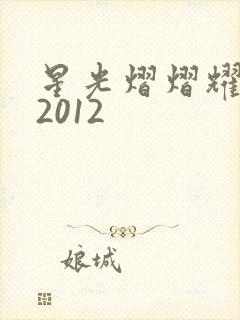 星光熠熠耀
2012
娘城